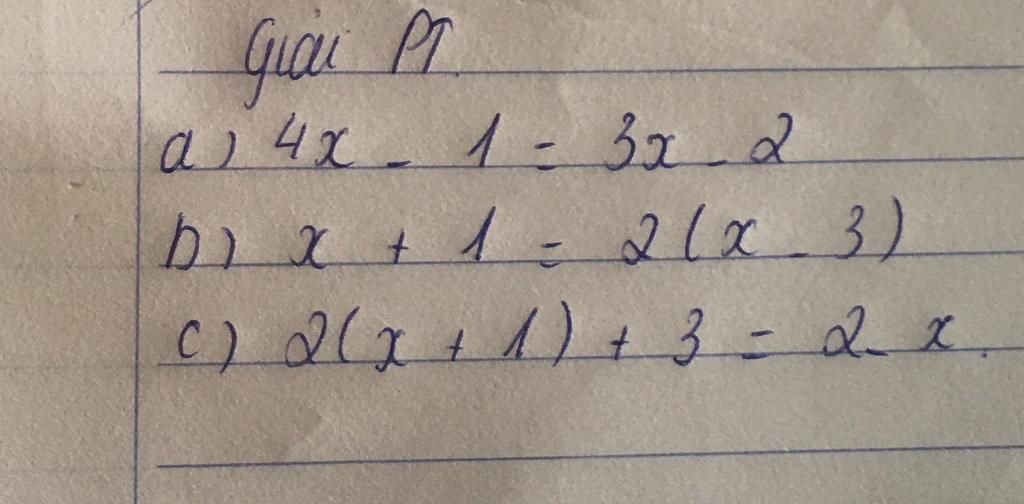 Giải PT
a) 4x - 1 = 3x - 2
b) x + 1 = 2(x - 3)
c) 2(x + 1) + 3 = 2 - x.